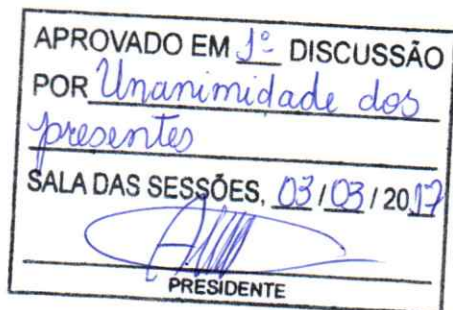 APROVADO EM 1º DISCUSSÃO
POR Unanimidade dos
presentes
SALA DAS SESSÕES, 03 / 03 / 2017
PRESIDENTE